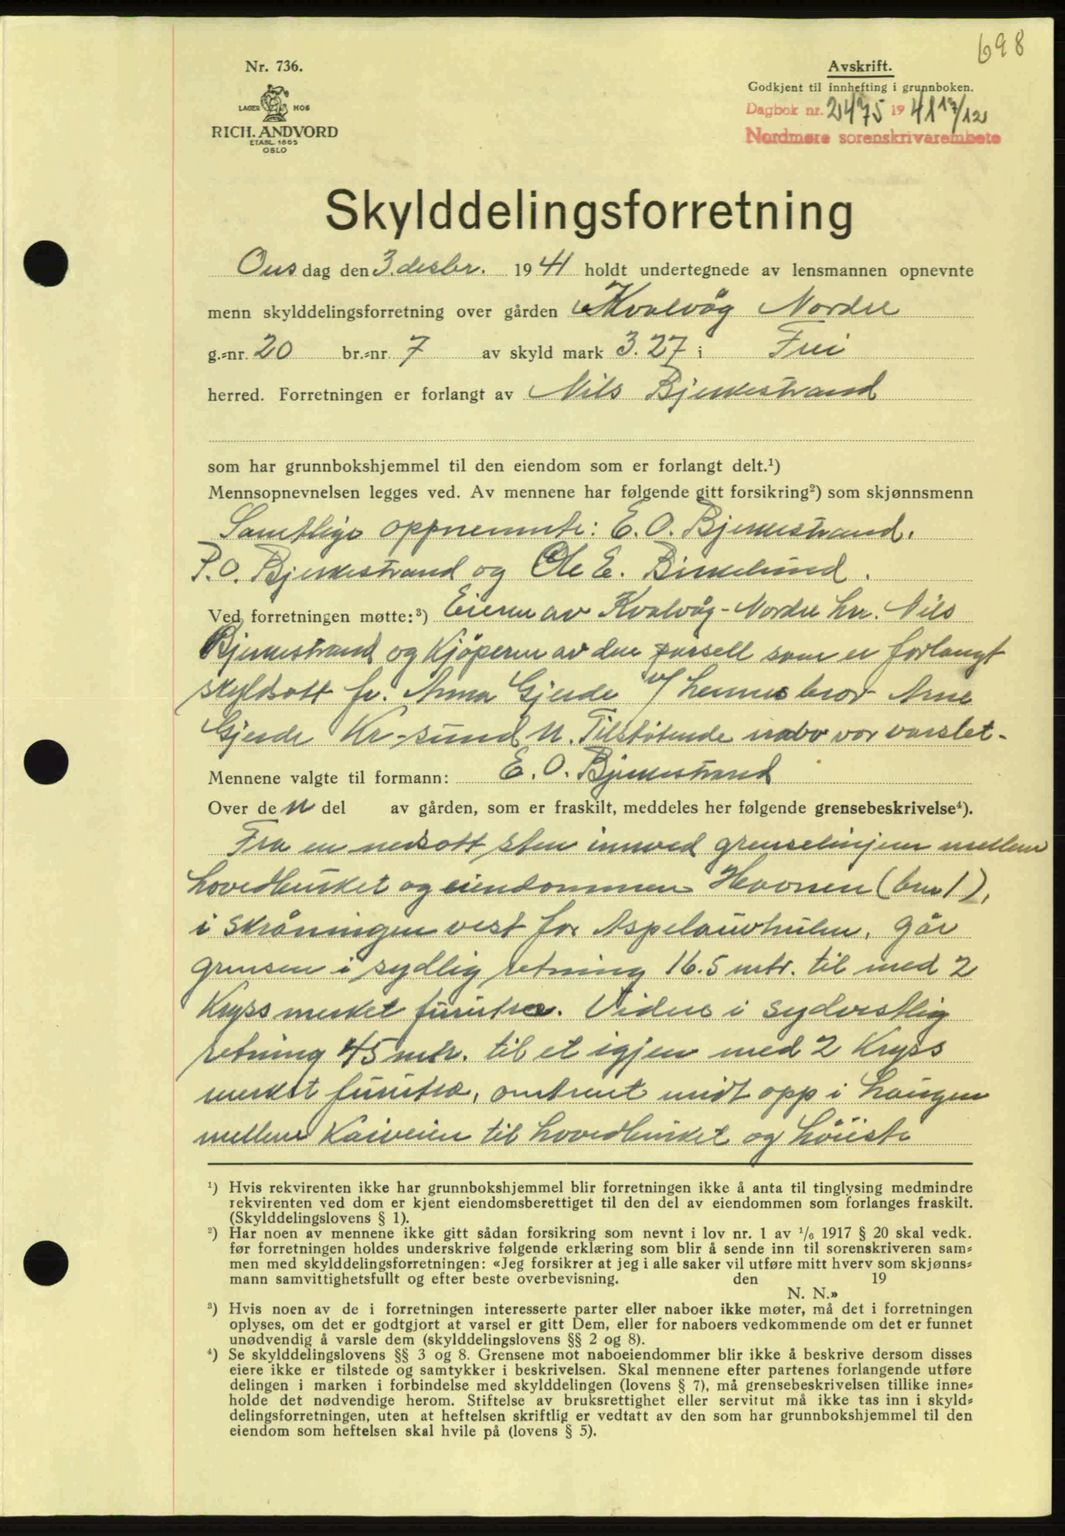 698
Nr. 736.
LAGER HOS
RICH. ANDVORD
ETABL. 1865
OSLO
Avskrift.
Godkjent til innhefting i grunnboken.
Dagbok nr. 2475 1941 17/12
Nordmøre sorenskrivarembete
Skylddelingsforretning
Ons dag den 3. desbr. 1941 holdt undertegnede av lensmannen opnevnte
menn skylddelingsforretning over gården Kvalvåg Nordre
g.-nr. 20 br.-nr. 7 av skyld mark 3.27 i Frei
herred. Forretningen er forlangt av Nils Bjerkestrand
som har grunnbokshjemmel til den eiendom som er forlangt delt.¹)
Mennsopnevnelsen legges ved. Av mennene har følgende gitt forsikring²) som skjønnsmenn
Samtlige oppnevnte: E. O. Bjerkestrand.
P. O. Bjerkestrand og Ole E. Birkelund.
Ved forretningen møtte:³) Eieren av Kvalvåg-Nordre hr. Nils
Bjerkestrand og Kjöperen av den parsell som er forlangt
skyldsatt fr. Anna Gjerde v/ hennes bror Arne
Gjerde Kr-sund N. Tilstøtende nabo var varslet-
Mennene valgte til formann: E. O. Bjerkestrand
Over de n del av gården, som er fraskilt, meddeles her følgende grensebeskrivelse⁴).
Fra en nedsatt sten innved grenselinjen mellem
hovedbruket og eiendommen Havnen (brn 1),
i skråningen vest for Aspelauvhulen, går
grensen i sydlig retning 16.5 mtr. til med 2
Kryss merket furutre. Videre i sydvestlig
retning 45 mtr. til et igjen med 2 Kryss
merket furutre, omtrent midt opp i haugen
mellem Kaiveien til hovedbruket og höiste
¹) Hvis rekvirenten ikke har grunnbokshjemmel blir forretningen ikke å anta til tinglysing medmindre
rekvirenten ved dom er kjent eiendomsberettiget til den del av eiendommen som forlanges fraskilt.
(Skylddelingslovens § 1).
²) Har noen av mennene ikke gitt sådan forsikring som nevnt i lov nr. 1 av ¹/₆ 1917 § 20 skal vedk.
før forretningen holdes underskrive følgende erklæring som blir å sende inn til sorenskriveren sam-
men med skylddelingsforretningen: «Jeg forsikrer at jeg i alle saker vil utføre mitt hverv som skjønns-
mann samvittighetsfullt og efter beste overbevisning. den 19
N. N.»
³) Hvis noen av de i forretningen interesserte parter eller naboer ikke møter, må det i forretningen
oplyses, om det er godtgjort at varsel er gitt Dem, eller for naboers vedkommende om det er funnet
unødvendig å varsle dem (skylddelingslovens §§ 2 og 8).
⁴) Se skylddelingslovens §§ 3 og 8. Grensene mot naboeiendommer blir ikke å beskrive dersom disses
eiere ikke er tilstede og samtykker i beskrivelsen. Skal mennene efter partenes forlangende utføre
delingen i marken i forbindelse med skylddelingen (lovens § 7), må grensebeskrivelsen tillike inne-
holde det nødvendige herom. Stiftelse av bruksrettighet eller servitut må ikke tas inn i skyld-
delingsforretningen, uten at heftelsen skriftlig er vedtatt av den som har grunnbokshjemmel til den
eiendom som heftelsen skal hvile på (lovens § 5).